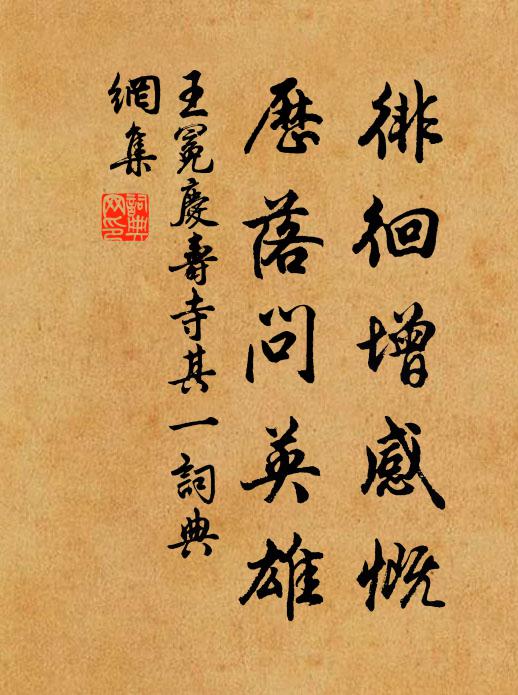 徘徊增感慨
歷落問英雄
王冕慶壽寺其一詞典
網集
詞典网印